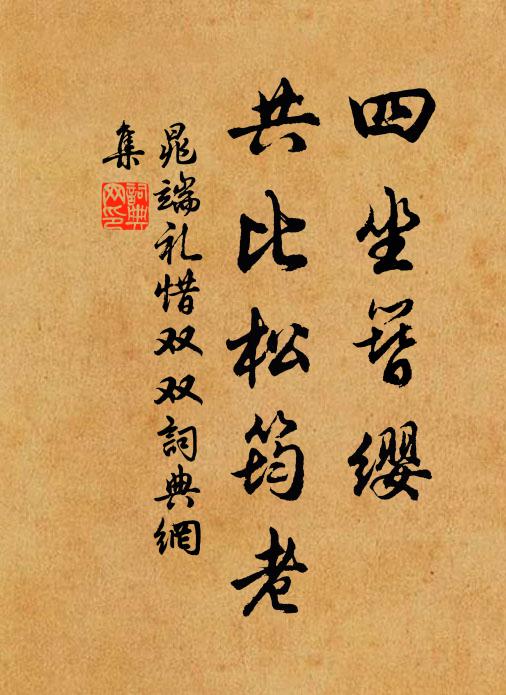 四坐簪缨
共比松筠老
晁端礼惜双双詞典網
集
詞典网印